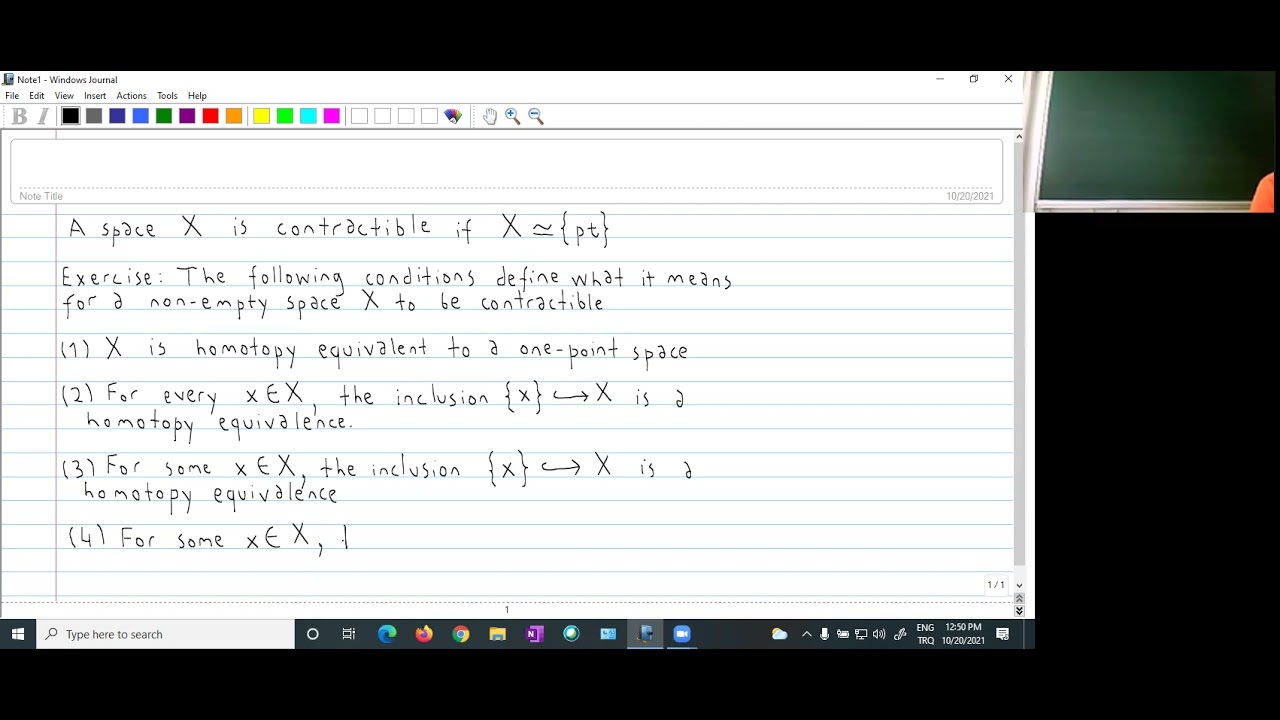 Note1 - Windows Journal
File Edit View Insert Actions Tools Help
B I
Note Title
10/20/2021
A space X is contractible if X ≃ {pt}
Exercise: The following conditions define what it means
for a non-empty space X to be contractible
(1) X is homotopy equivalent to a one-point space
(2) For every x ∈ X, the inclusion {x} ↪ X is a
homotopy equivalence.
(3) For some x ∈ X, the inclusion {x} ↪ X is a
homotopy equivalence
(4) For some x ∈ X,
1 / 1
1
Type here to search
ENG
TRQ
12:50 PM
10/20/2021